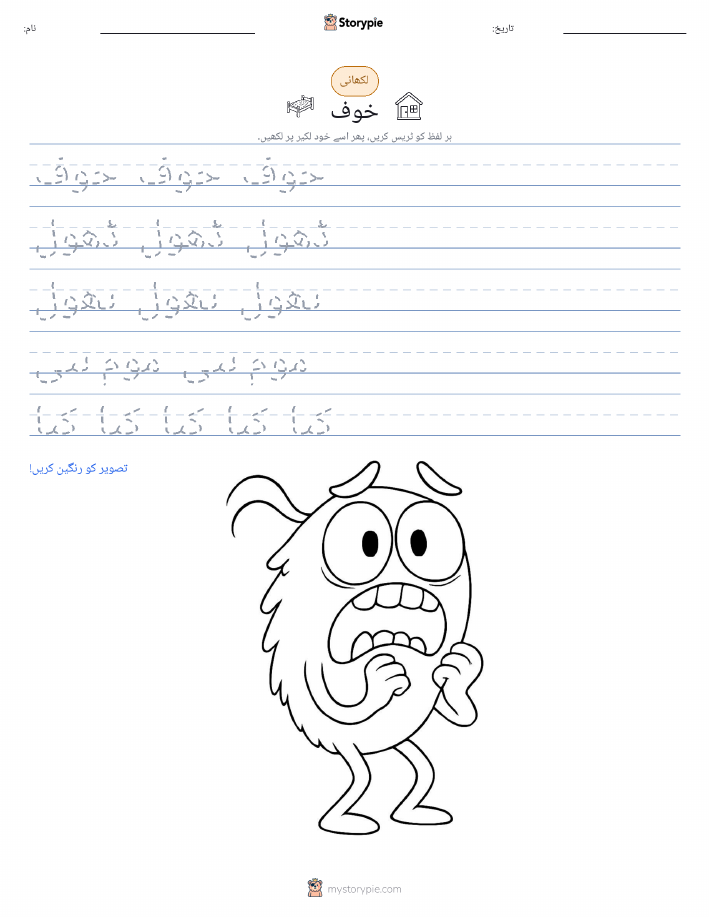 نام:
Storypie
تاریخ:
لکھائی
خوف
ہر لفظ کو ٹریس کریں، پھر اسے خود لکیر پر لکھیں۔
خوف خوف خوف
ڈھول ڈھول ڈھول
پھول پھول پھول
موم بتی موم بتی
تصویر کو رنگین کریں!
mystorypie.com